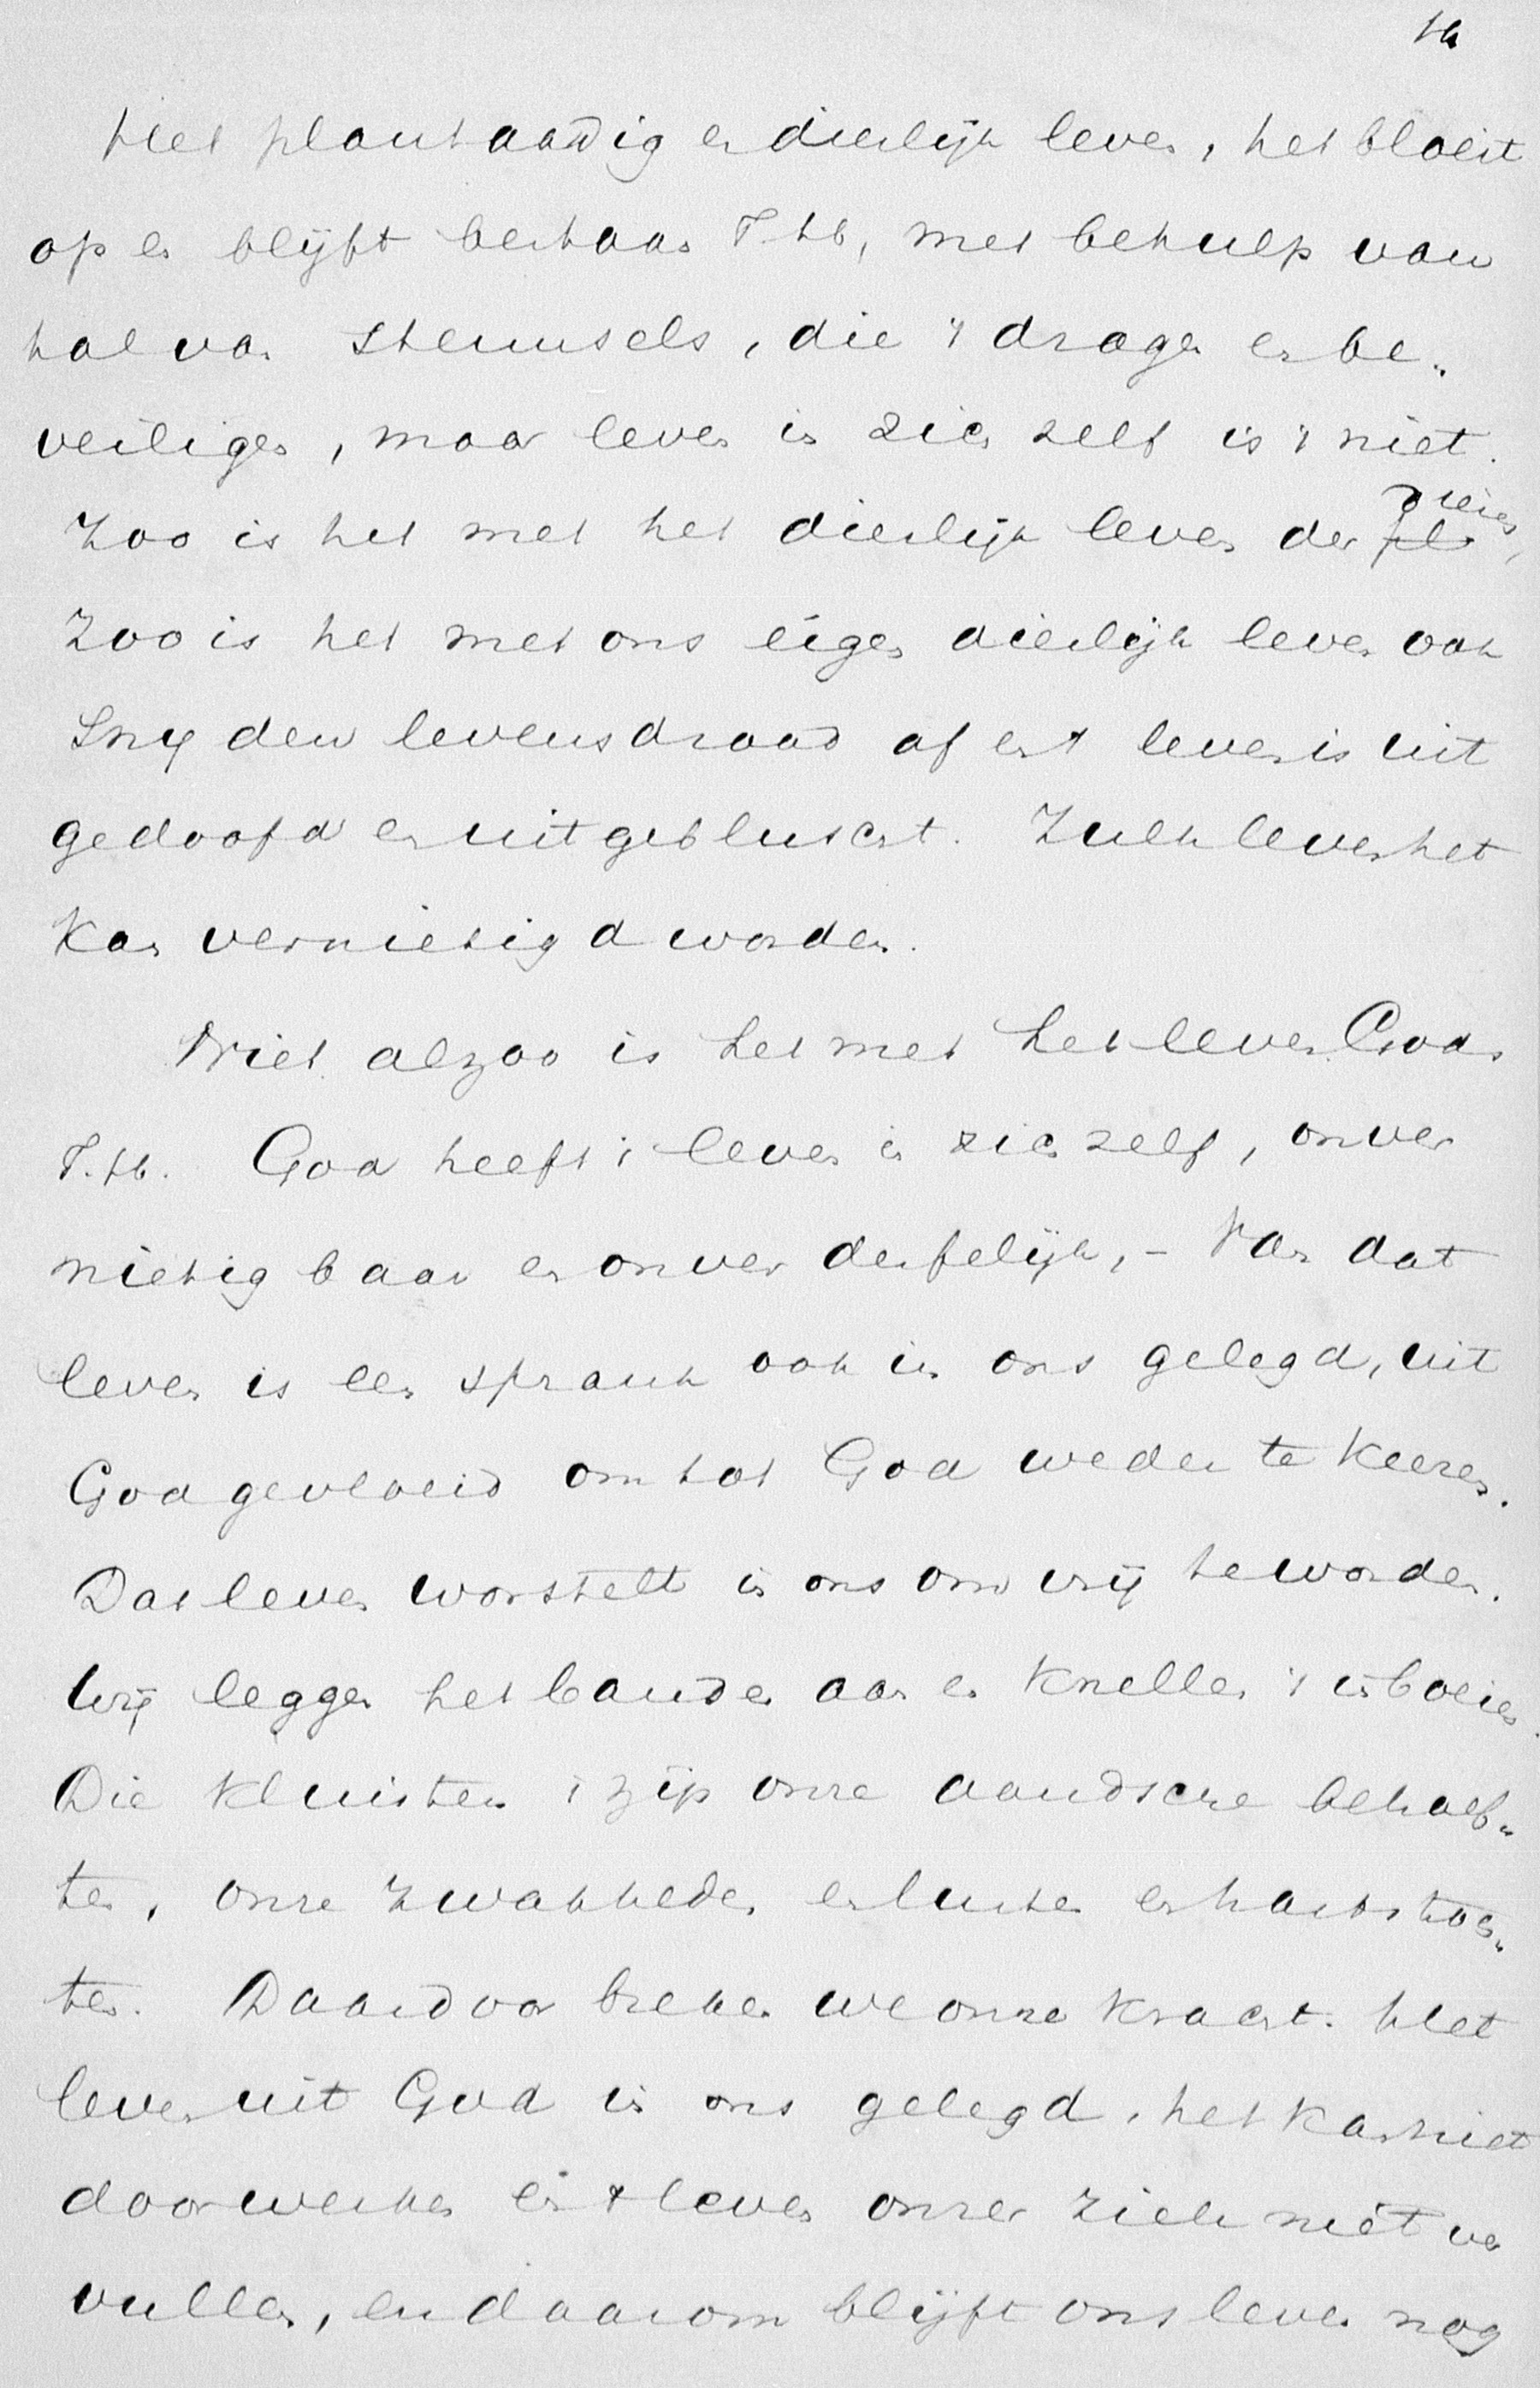 14
Het plantaardig en dierlijk leven, het bloeit
op en blijft bestaan T. H., met behulp van
tal van steunsels, die 't dragen en be„
veiligen, maar leven in zich zelf is 't niet.
Zoo is het met het dierlijk leven der dieren,
Zoo is het met ons eigen dierlijk leven ook
Snij den levensdraad af en 't leven is uit
gedoofd en uitgebluscht. Zulk leven het
kan vernietigd worden.
Niet alzoo is het met het leven Gods
T. H. God heeft 't leven in zich zelf, onver
nietigbaar en onverderfelijk, – Van dat
leven is een sprank ook in ons gelegd, uit
God gevloeid om tot God weder te keeren.
Dat leven worstelt in ons om vrij te worden.
Wij leggen het banden aan en knellen 't in boeien.
Die kluisters 't zijn onze aardsche behoef„
ten, onze zwakheden en lusten en hartstoch„
ten. Daardoor breken we onze kracht. Het
leven uit God in ons gelegd, het kan niet
doorwerken en 't leven onzer ziele niet ver
vullen, en daarom blijft ons leven nog